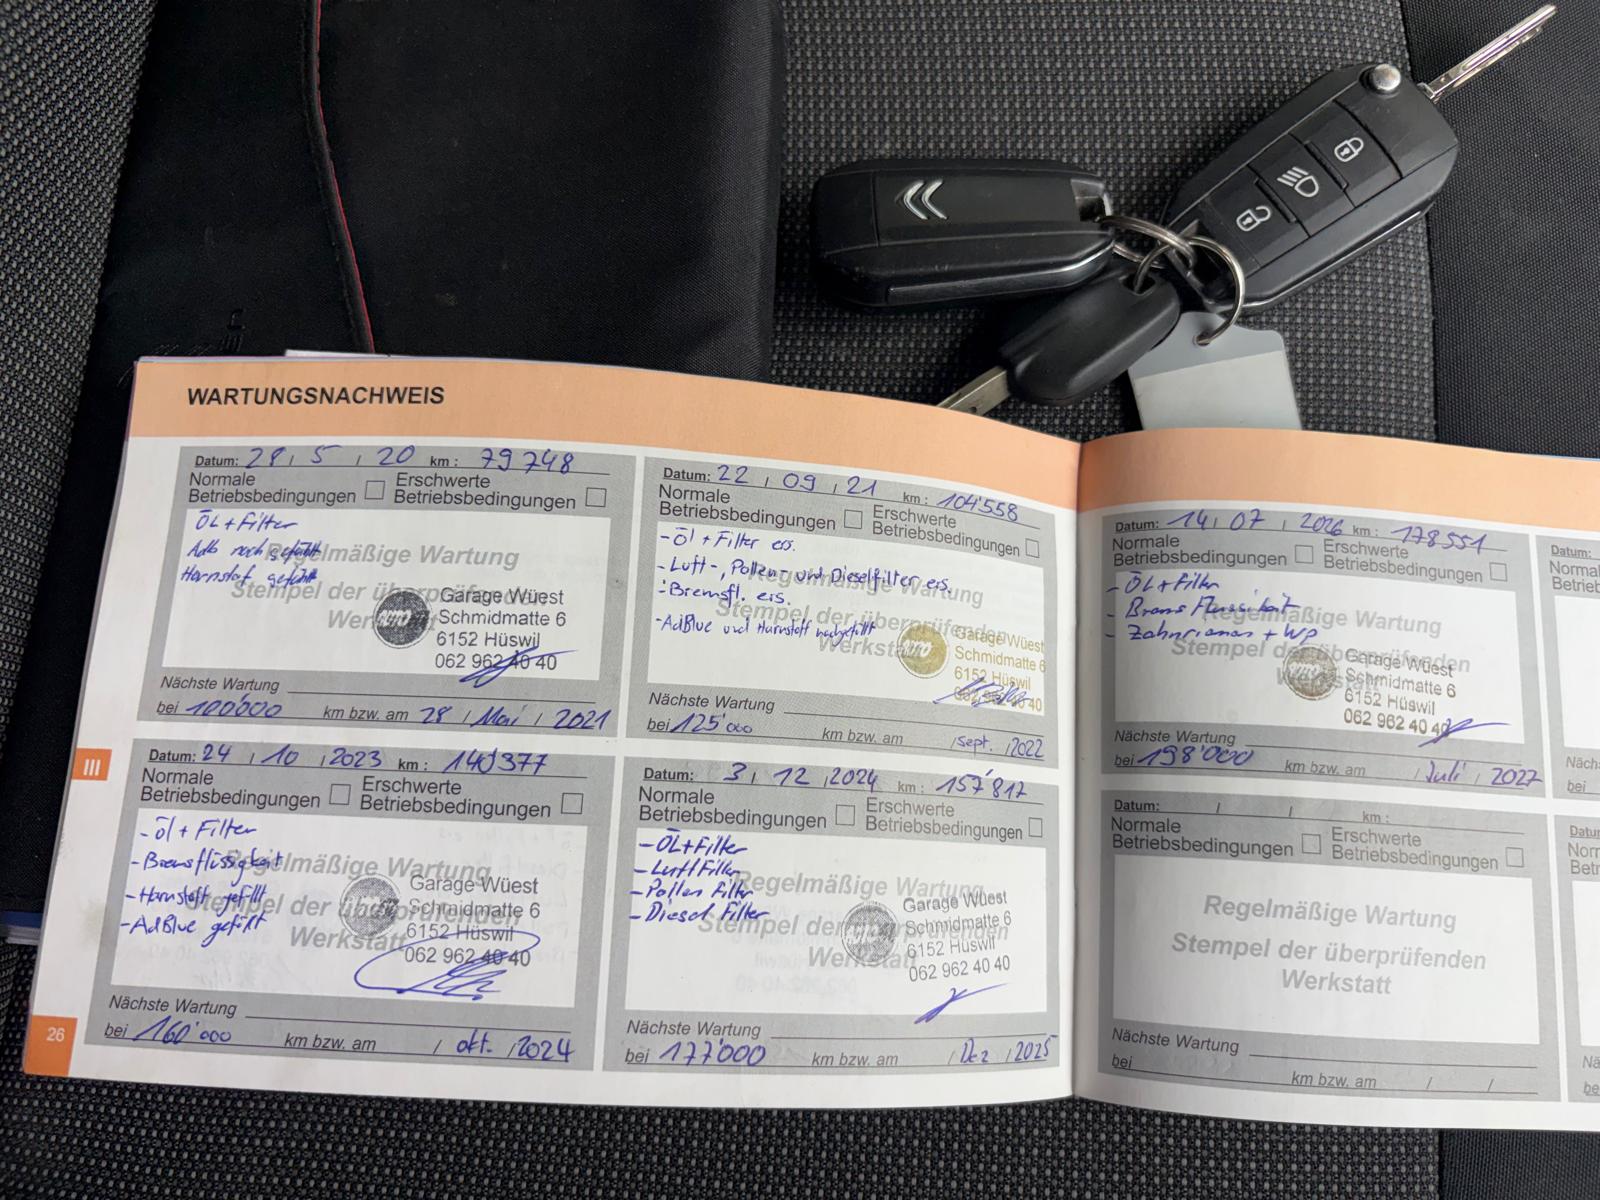 WARTUNGSNACHWEIS
Datum: 28 / 5 / 20 km : 79748
Normale Betriebsbedingungen Erschwerte Betriebsbedingungen
ÖL + Filter
Regelmäßige Wartung
Stempel der überprüfenden
Werkstatt
Garage Wüest
Schmidmatte 6
6152 Hüswil
062 962 40 40
Nächste Wartung
bei 100'000 km bzw. am 28 / Mai / 2021
Datum: 22 / 09 / 21 km : 104'558
Normale Betriebsbedingungen Erschwerte Betriebsbedingungen
- Öl + Filter ers.
- Luft-, Pollen- und Dieselfilter ers.
- Bremsfl. ers.
- AdBlue und Harnstoff nachgefüllt
Regelmäßige Wartung
Stempel der überprüfenden
Werkstatt
Garage Wüest
Schmidmatte 6
6152 Hüswil
062 962 40 40
Nächste Wartung
bei 125'000 km bzw. am / sept. / 2022
Datum: 24 / 10 / 2023 km :
Normale Betriebsbedingungen Erschwerte Betriebsbedingungen
- Öl + Filter
- Bremsflüssigkeit
- Harnstoff gefüllt
- AdBlue gefüllt
Regelmäßige Wartung
Stempel der überprüfenden
Werkstatt
Garage Wüest
Schmidmatte 6
6152 Hüswil
062 962 40 40
Nächste Wartung
bei 160'000 km bzw. am / okt. / 2024
Datum: 3 / 12 / 2024 km : 157'817
Normale Betriebsbedingungen Erschwerte Betriebsbedingungen
- ÖL + Filter
- Luft Filter
- Pollen Filter
- Diesel Filter
Regelmäßige Wartung
Stempel der überprüfenden
Werkstatt
Garage Wüest
Schmidmatte 6
6152 Hüswil
062 962 40 40
Nächste Wartung
bei 177'000 km bzw. am / Dez / 2025
III
26
Datum: 14 / 07 / 2026 km : 178551
Normale Betriebsbedingungen Erschwerte Betriebsbedingungen
- ÖL + Filter
- Brems Flussikeit
- Zahnriemen + WP
Regelmäßige Wartung
Stempel der überprüfenden
Werkstatt
Garage Wüest
Schmidmatte 6
6152 Hüswil
062 962 40 40
Nächste Wartung
bei 198'000 km bzw. am / Juli / 2027
Datum: / / km :
Normale Betriebsbedingungen Erschwerte Betriebsbedingungen
Regelmäßige Wartung
Stempel der überprüfenden
Werkstatt
Nächste Wartung
bei km bzw. am / /
Datum: